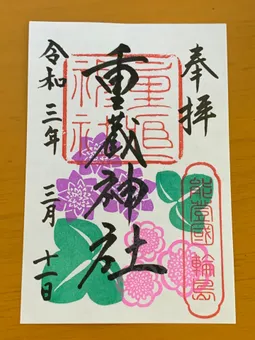 奉拝
重蔵神社
能登國 輪島
重蔵神社
令和三年 三月 十一日